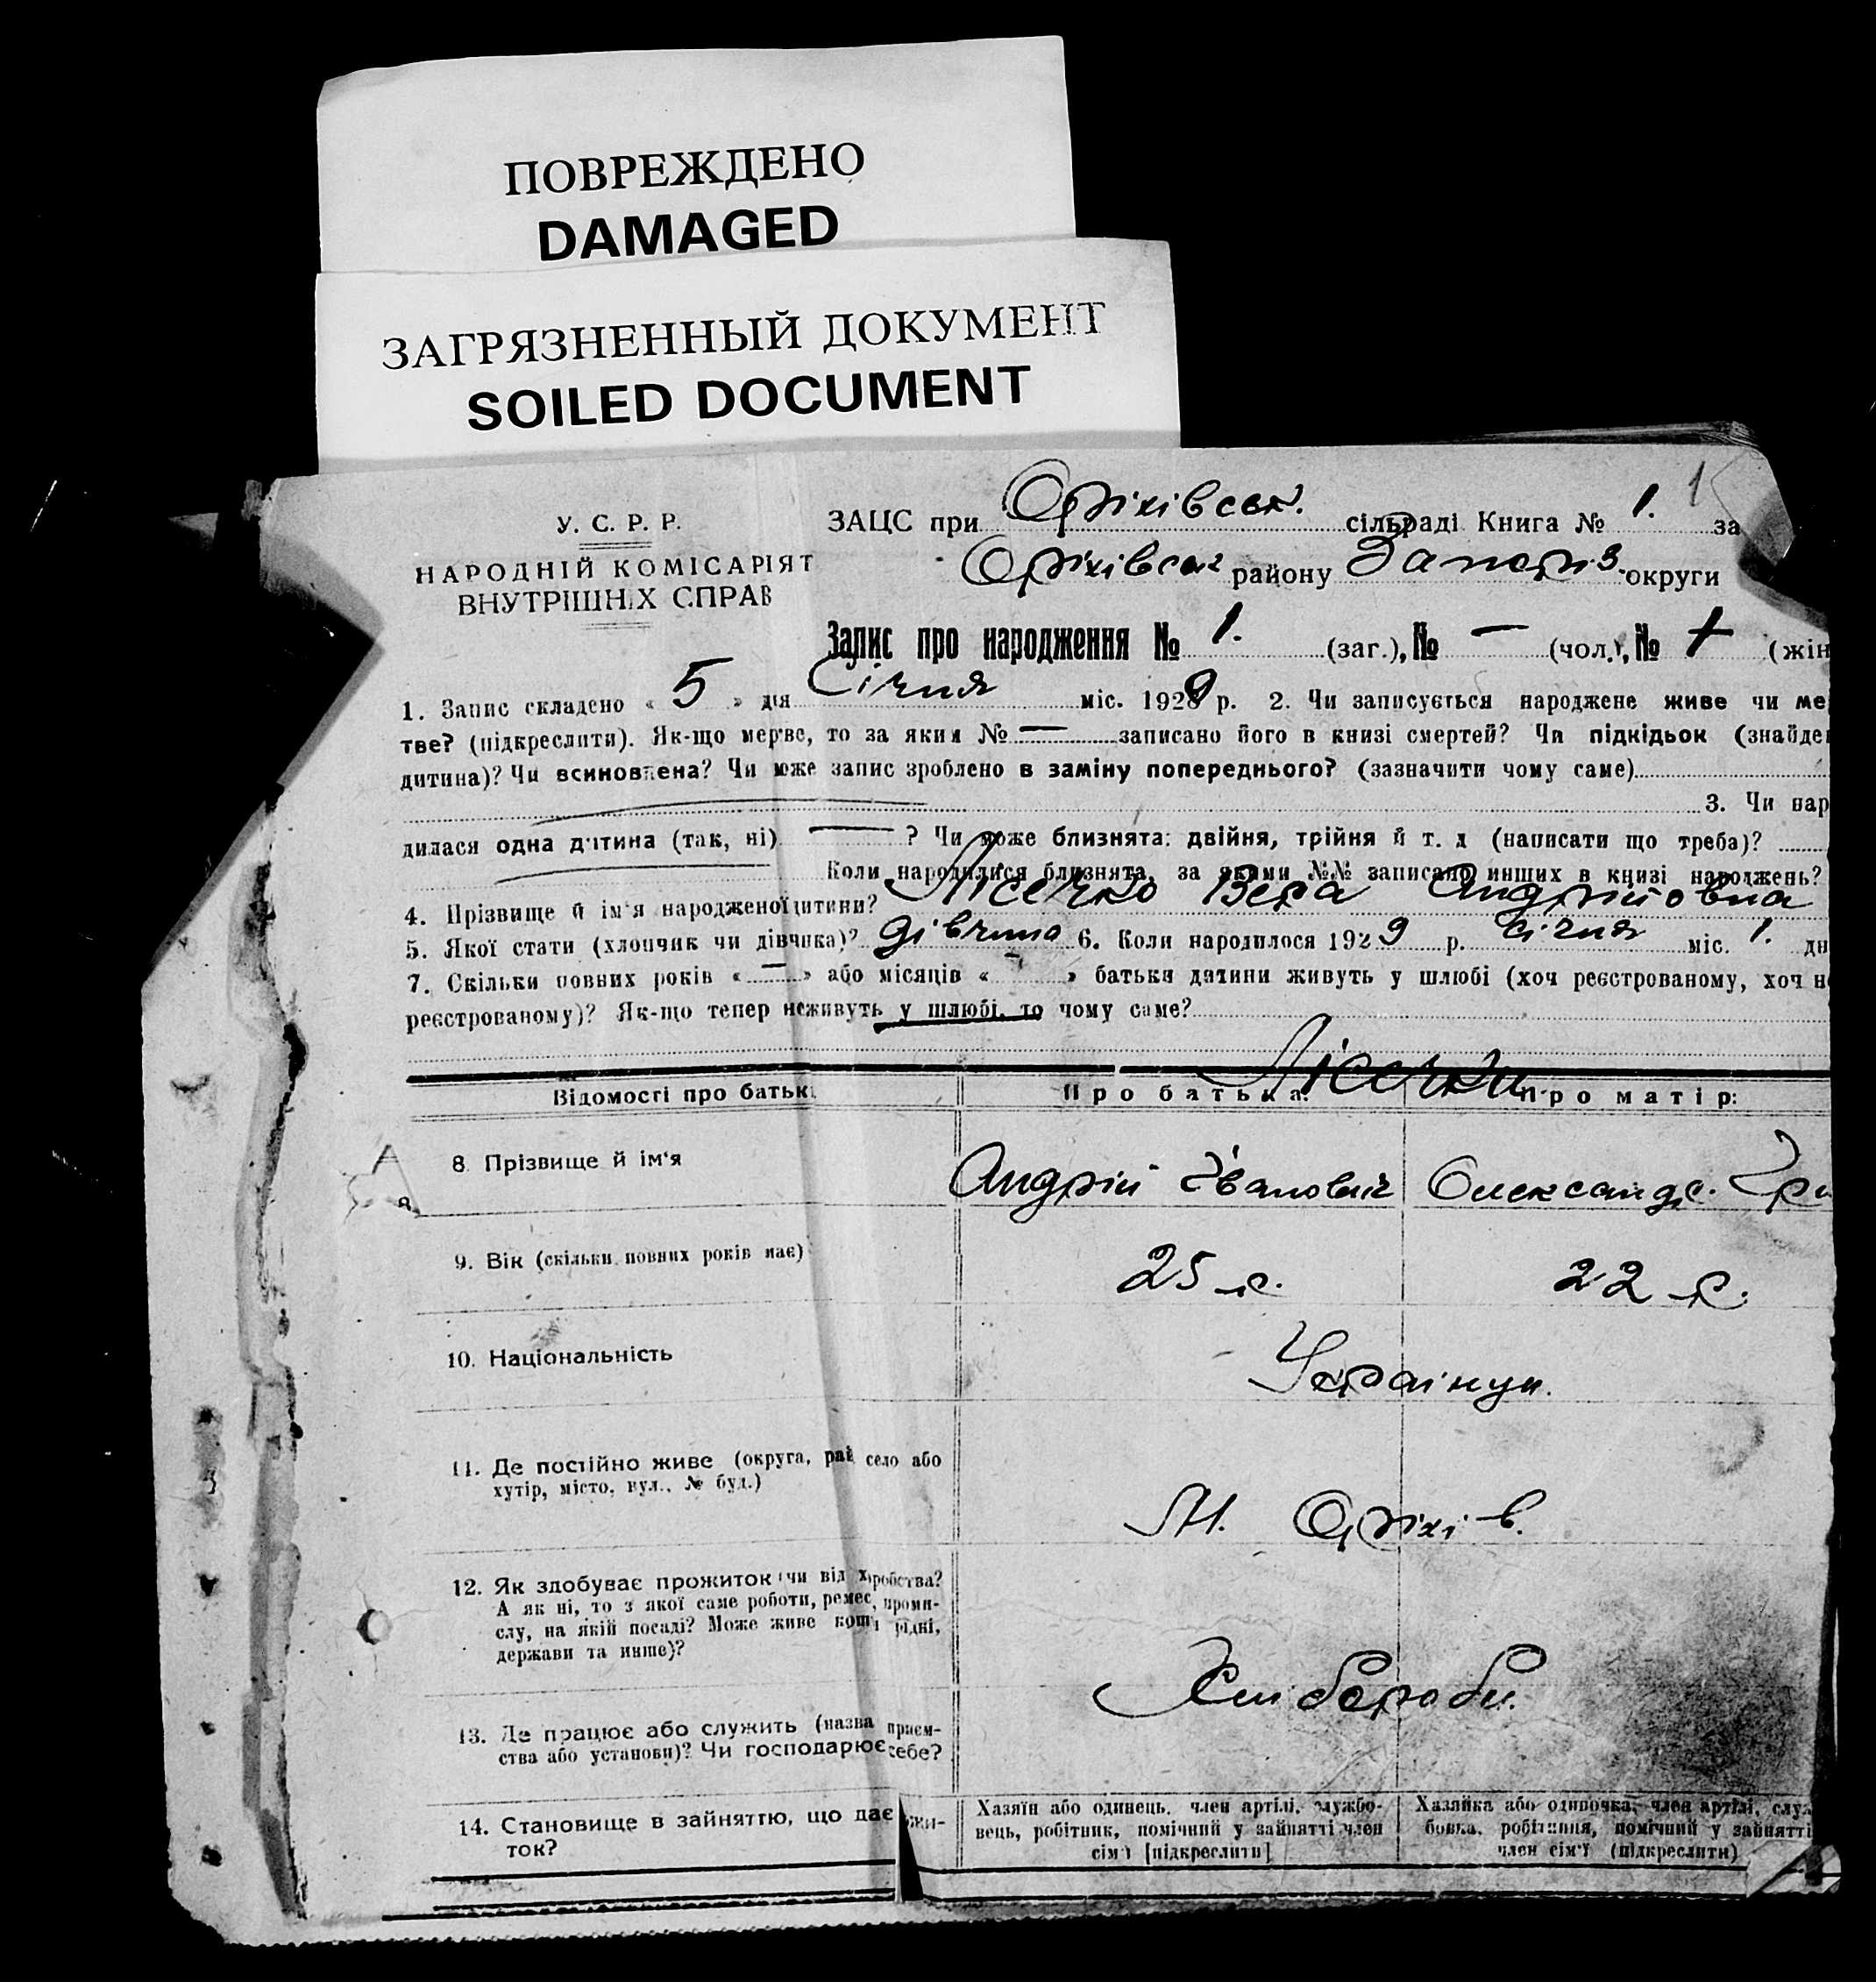 ПОВРЕЖДЕНО
DAMAGED
ЗАГРЯЗНЕННЫЙ ДОКУМЕНТ
SOILED DOCUMENT
1
У. С. Р. Р.
НАРОДНІЙ КОМІСАРІЯТ
ВНУТРІШНІХ СПРАВ
ЗАЦС при Оріхівськ. сільраді Книга № 1. за
Оріхівськ району Запоріз. округи
Запис про народження № 1. (заг.), № — (чол.), № 1 (жін
1. Запис складено « 5 » дня Січня міс. 1929 р. 2. Чи записується народжене живе чи ме
тве? (підкреслити). Як-що мертве, то за яким № — записано його в книзі смертей? Чи підкідьок (знайде
дитина)? Чи всиновлена? Чи може запис зроблено в заміну попереднього? (зазначити чому саме)
3. Чи нар
дилася одна дитина (так, ні) — ? Чи може близнята: двійня, трійня й т. д (написати що треба)?
Коли народилися близнята, за якими №№ записано инших в книзі народжень?
4. Прізвище й ім'я народженої дитини? Лісечко Вера Андрійовна
5. Якої стати (хлопчик чи дівчика)? дівчина 6. Коли народилося 1929 р. січня міс. 1. дн
7. Скільки повних років « — » або місяців « » батьки дитини живуть у шлюбі (хоч реєстрованому, хоч н
реєстрованому)? Як-що тепер неживуть у шлюбі, то чому саме?
Лісечки
Відомості про батьк Про батька: Про матір:
8. Прізвище й ім'я Андрій Іванович Олександр.
9. Вік (скільки повних років має) 25 р. 22 р.
10. Національність Українци.
11. Де постійно живе (округа, рай село або
хутір, місто, вул., № буд.)
М. Оріхів.
12. Як здобуває прожиток (чи від хліробства?
А як ні, то з якої саме роботи, ремес, проми-
слу, на якій посаді? Може живе кошт рідні,
держави та инше)?
Хлібороби.
13. Де працює або служить (назва приєм-
ства або установи)? Чи господарює себе?
14. Становище в зайняттю, що дає жи-
ток?
Хазяїн або одинець, член артілі, службо-
вець, робітник, помічний у зайнятті член
сім'ї [підкреслити]
Хазяйка або одиночка, член артілі, служ
бовка, робітниця, помічний у зайнятті
член сім'ї (підкреслити)